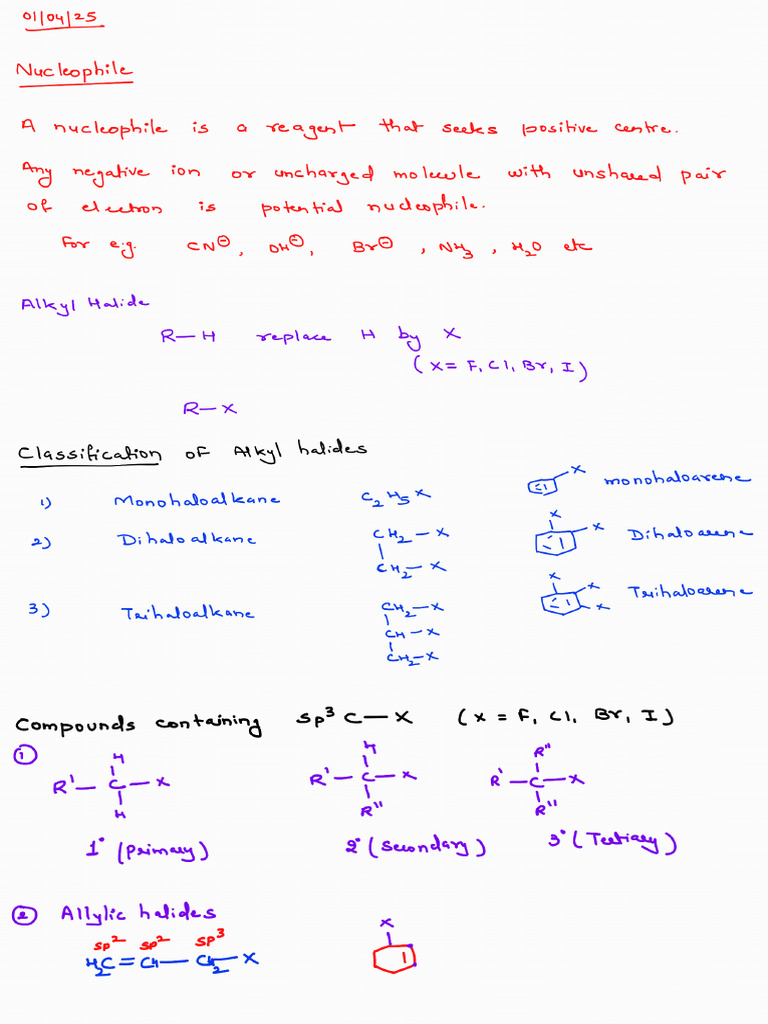 01/04/25
Nucleophile
A nucleophile is a reagent that seeks positive centre.
Any negative ion or uncharged molecule with unshared pair
of electron is potential nucleophile.
For e.g. CN⊖, OH⊖, Br⊖, NH3, H2O etc
Alkyl Halide
R—H replace H by X
(X= F, Cl, Br, I)
R—X
Classification of Alkyl halides
1) Monohaloalkane C2H5X X monohaloarene
2) Dihaloalkane CH2—X X X Dihaloarene
CH2—X
3) Trihaloalkane CH2—X X X X Trihaloarene
CH—X
CH2—X
Compounds containing sp3 C—X (X = F, Cl, Br, I)
① H H R"
R'—C—X R'—C—X R'—C—X
H R" R"'
1° (Primary) 2° (Secondary) 3° (Tertiary)
② Allylic halides X
sp2 sp2 sp3
H2C=CH—CH2—X